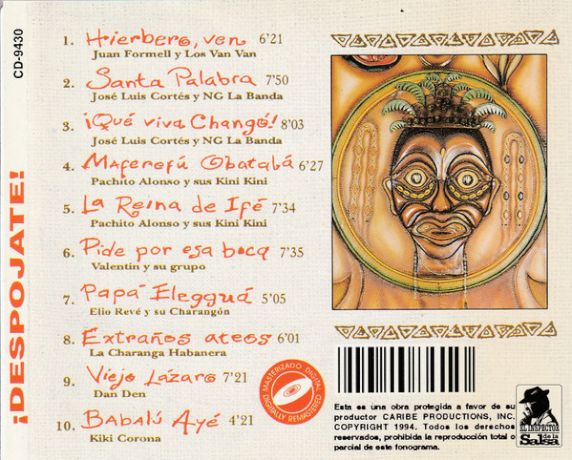 CD-9430
¡DESPOJATE!
1. Hierbero, ven 6'21
Juan Formell y Los Van Van
2. Santa Palabra 7'50
José Luis Cortés y NG La Banda
3. ¡Qué viva Changó! 8'03
José Luis Cortés y NG La Banda
4. Maferefú Obatalá 6'27
Pachito Alonso y sus Kini Kini
5. La Reina de Ifé 7'34
Pachito Alonso y sus Kini Kini
6. Pide por esa boca 7'35
Valentin y su grupo
7. Papá Eleggúá 5'05
Elio Revé y su Charangón
8. Extraños ateos 6'01
La Charanga Habanera
9. Viejo Lázaro 7'21
Dan Den
10. Babalú Ayé 4'21
Kiki Corona
MASTERIZADO DIGITAL
DIGITALLY REMASTERED
Esta es una obra protegida a favor de su
productor CARIBE PRODUCTIONS, INC.
COPYRIGHT 1994. Todos los derechos
reservados, prohibida la reproducción total o
parcial de este fonograma.
EL INSPECTOR
de la
Salsa